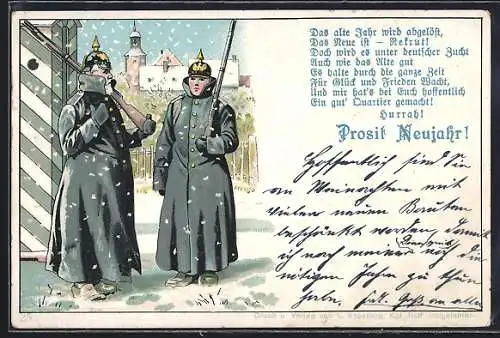 Das alte Jahr wird abgelöst,
Das Neue ist – Rekrut!
Doch wird es unter deutscher Zucht
Auch wie das Alte gut
Es halte durch die ganze Zeit
Für Glück und Frieden Wacht,
Und mir hat's bei Euch hoffentlich
Ein gut' Quartier gemacht!
Hurrah!
Prosit Neujahr!
Hoffentlich sind Sie
an Weinachten mit
vielen neuen
beschenkt worden, damit
ich noch meiner
nötigen Jahren zu thun
habe. Gruß an alle
Druck u. Verlag von